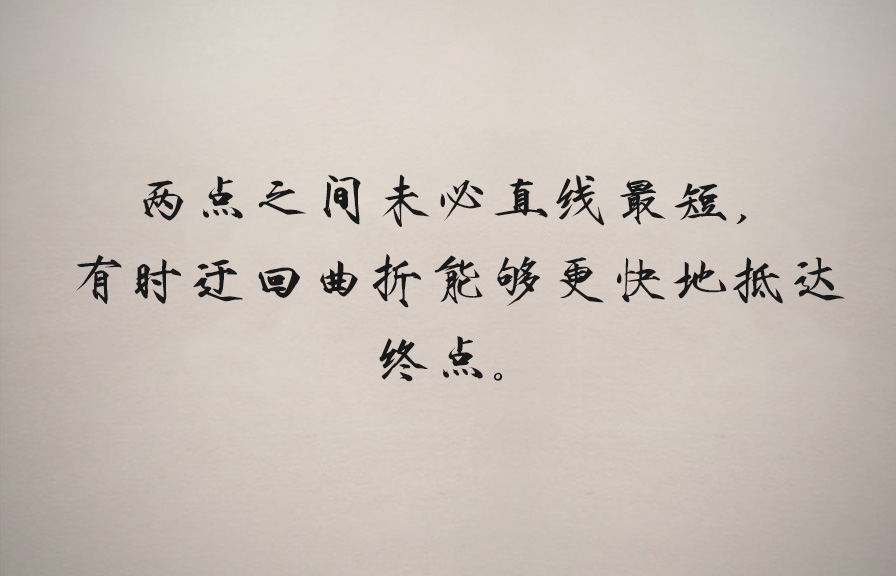 两点之间未必直线最短，
有时迂回曲折能够更快地抵达
终点。